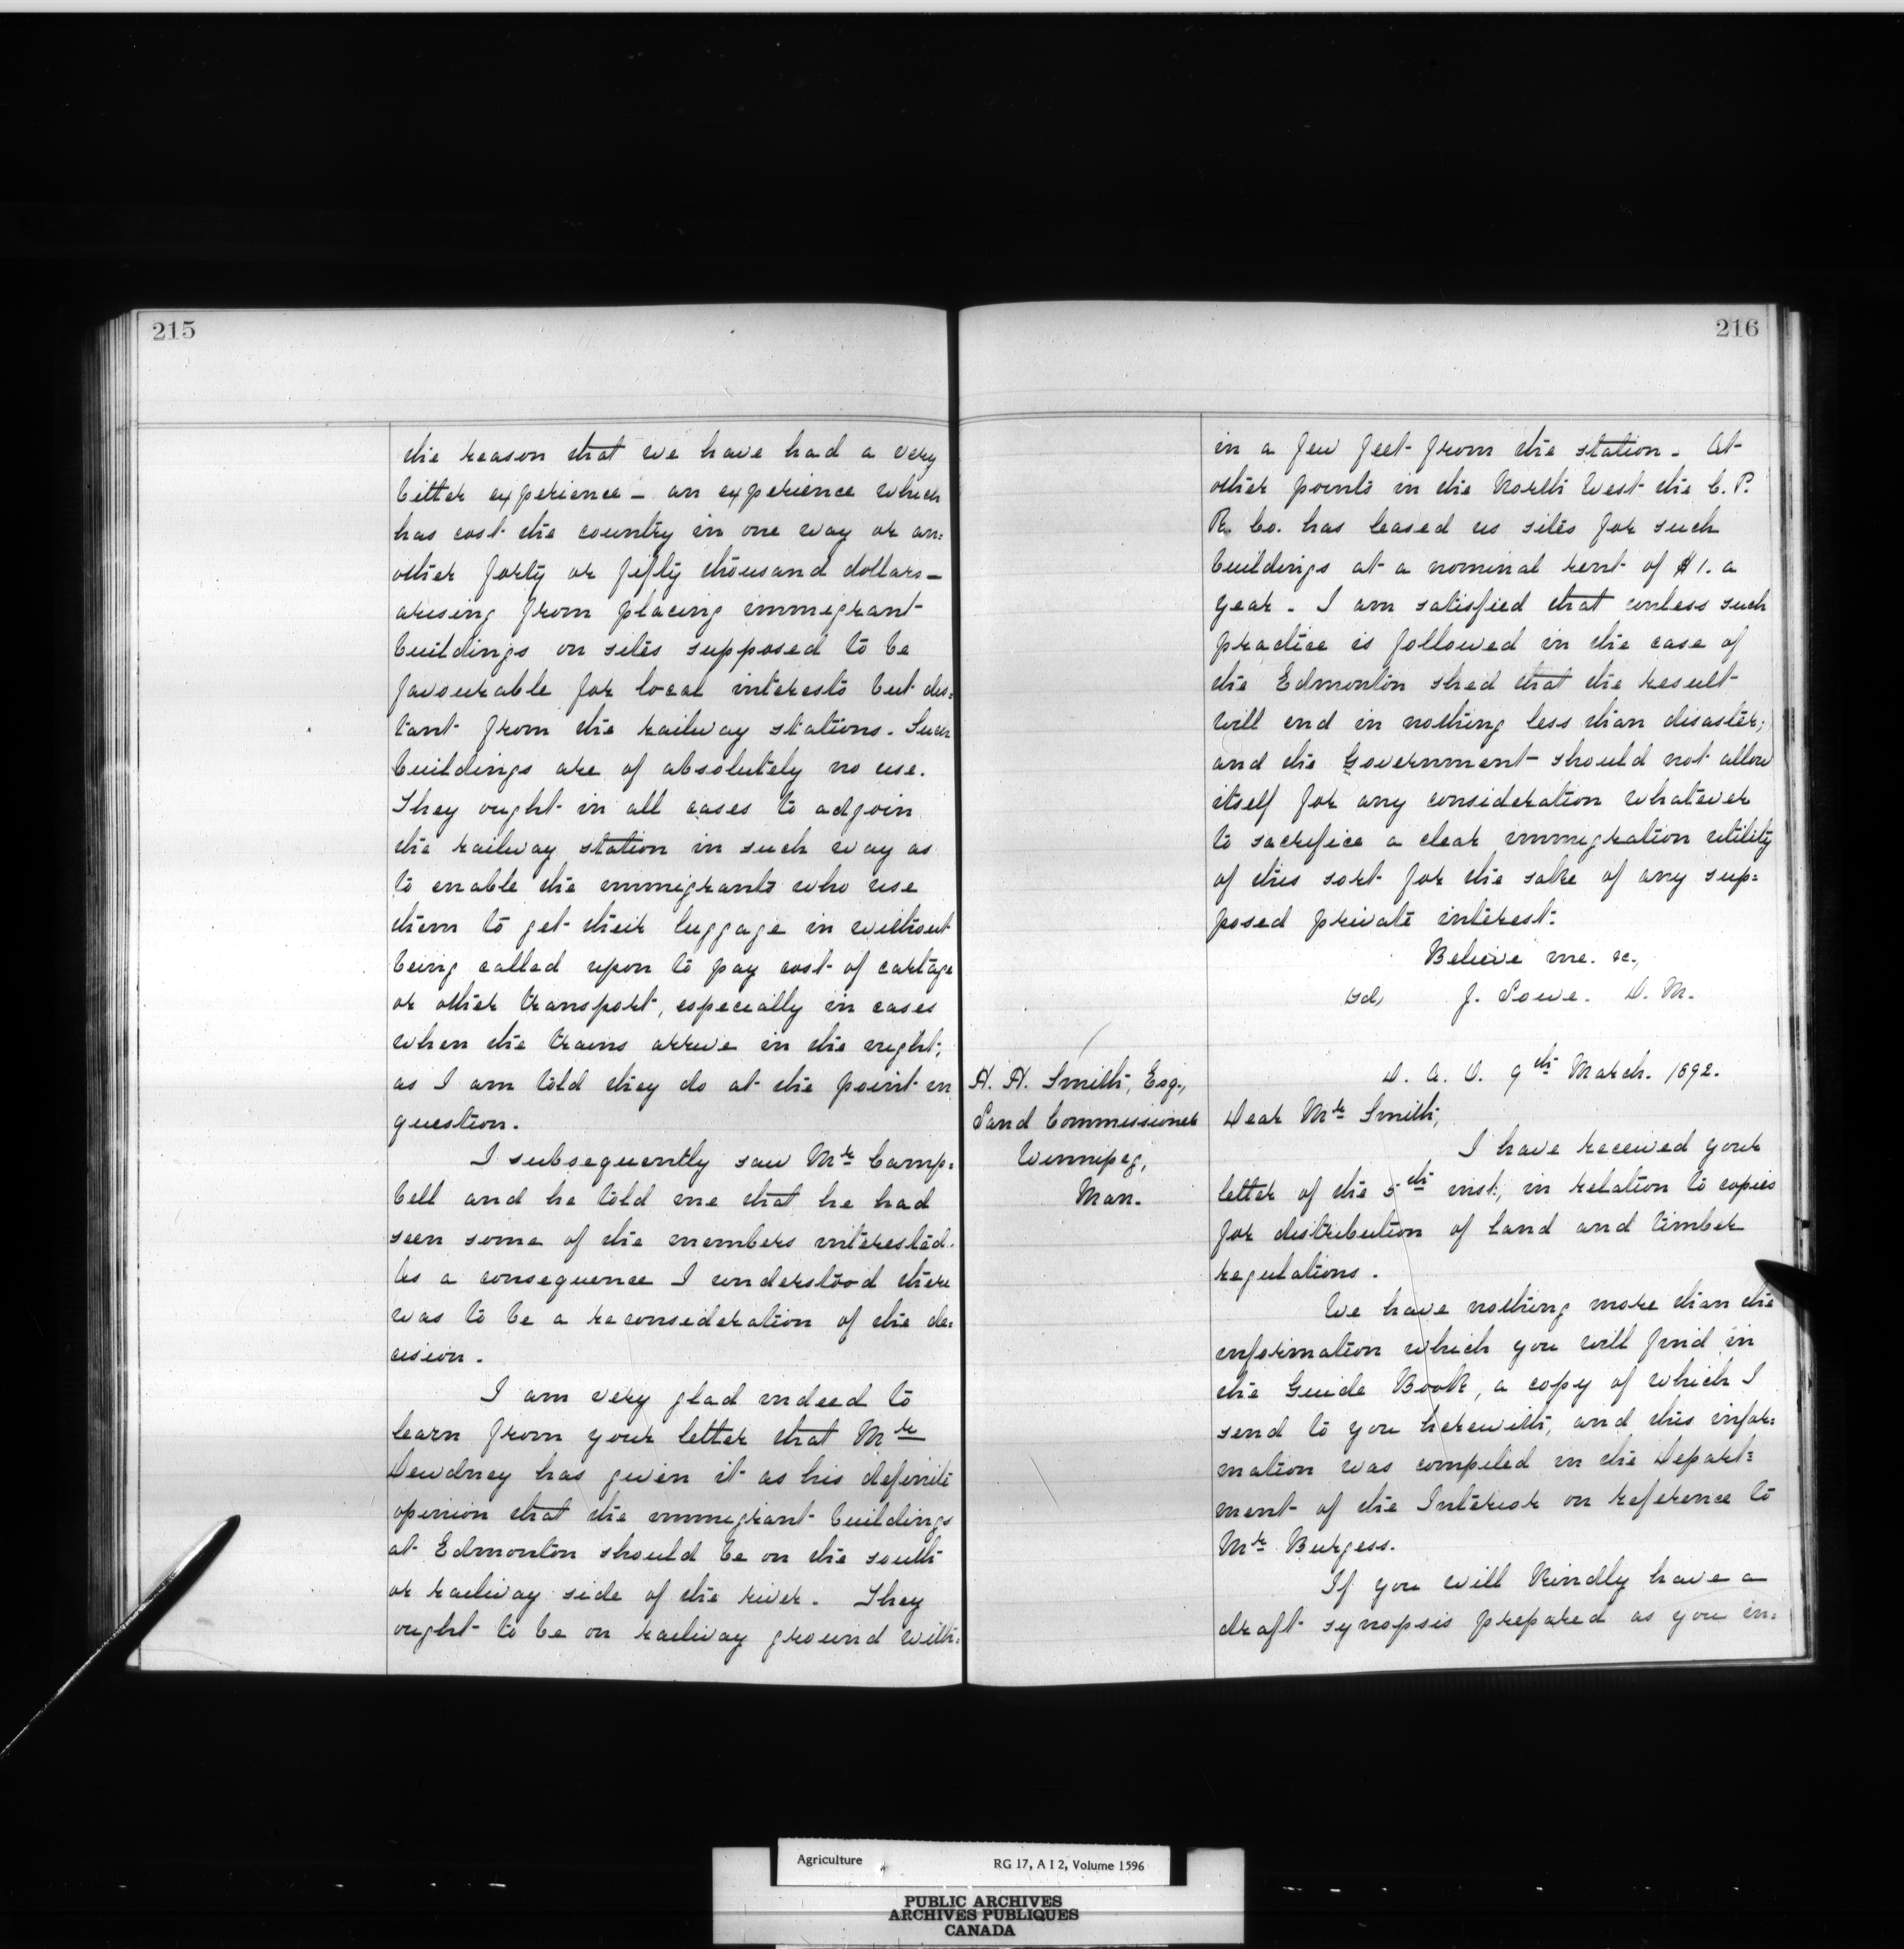 215
the reason that we have had a very
bitter experience - an experience which
has cost the country in one way or an=
other forty or fifty thousand dollars -
arising from placing immigrant
buildings on sites supposed to be
favourable for local interests but dis=
tant from the railway stations. Such
buildings are of absolutely no use.
They ought in all cases to adjoin
the railway station in such way as
to enable the immigrants who use
them to get their luggage in without
being called upon to pay cost of cartage
or other transport, especially in cases
when the trains arrive in the night,
as I am told they do at the point in
question.
I subsequently saw Mr Camp=
bell and he told me that he had
seen some of the members interested.
As a consequence I understood there
was to be a reconsideration of the de=
cision.
I am very glad indeed to
learn from your letter that Mr
Dewdney has given it as his definite
opinion that the immigrant buildings
at Edmonton should be on the south
or railway side of the river. They
ought to be on railway ground with=
216
in a few feet from the station. At
other points in the North West the C. P.
R. Co. has leased us sites for such
buildings at a nominal rent of $1. a
year. I am satisfied that unless such
practice is followed in the case of
the Edmonton shed that the result
will end in nothing less than disaster;
and the Government should not allow
itself for any consideration whatever
to sacrifice a clear immigration utility
of this sort for the sake of any sup=
posed private interest.
Believe me. &c.,
sd, J. Lowe. D. M.
D. A. O. 9th March. 1892.
H. H. Smith, Esq.,
Land Commissioner
Winnipeg,
Man.
Dear Mr Smith,
I have received your
letter of the 5th inst., in relation to copies
for distribution of land and timber
regulations.
We have nothing more than the
information which you will find in
the Guide Book, a copy of which I
send to you herewith, and this infor=
mation was compiled in the Depart=
ment of the Interior on reference to
Mr Burgess.
If you will kindly have a
draft synopsis prepared as you in=
Agriculture RG 17, A I 2, Volume 1596
PUBLIC ARCHIVES
ARCHIVES PUBLIQUES
CANADA